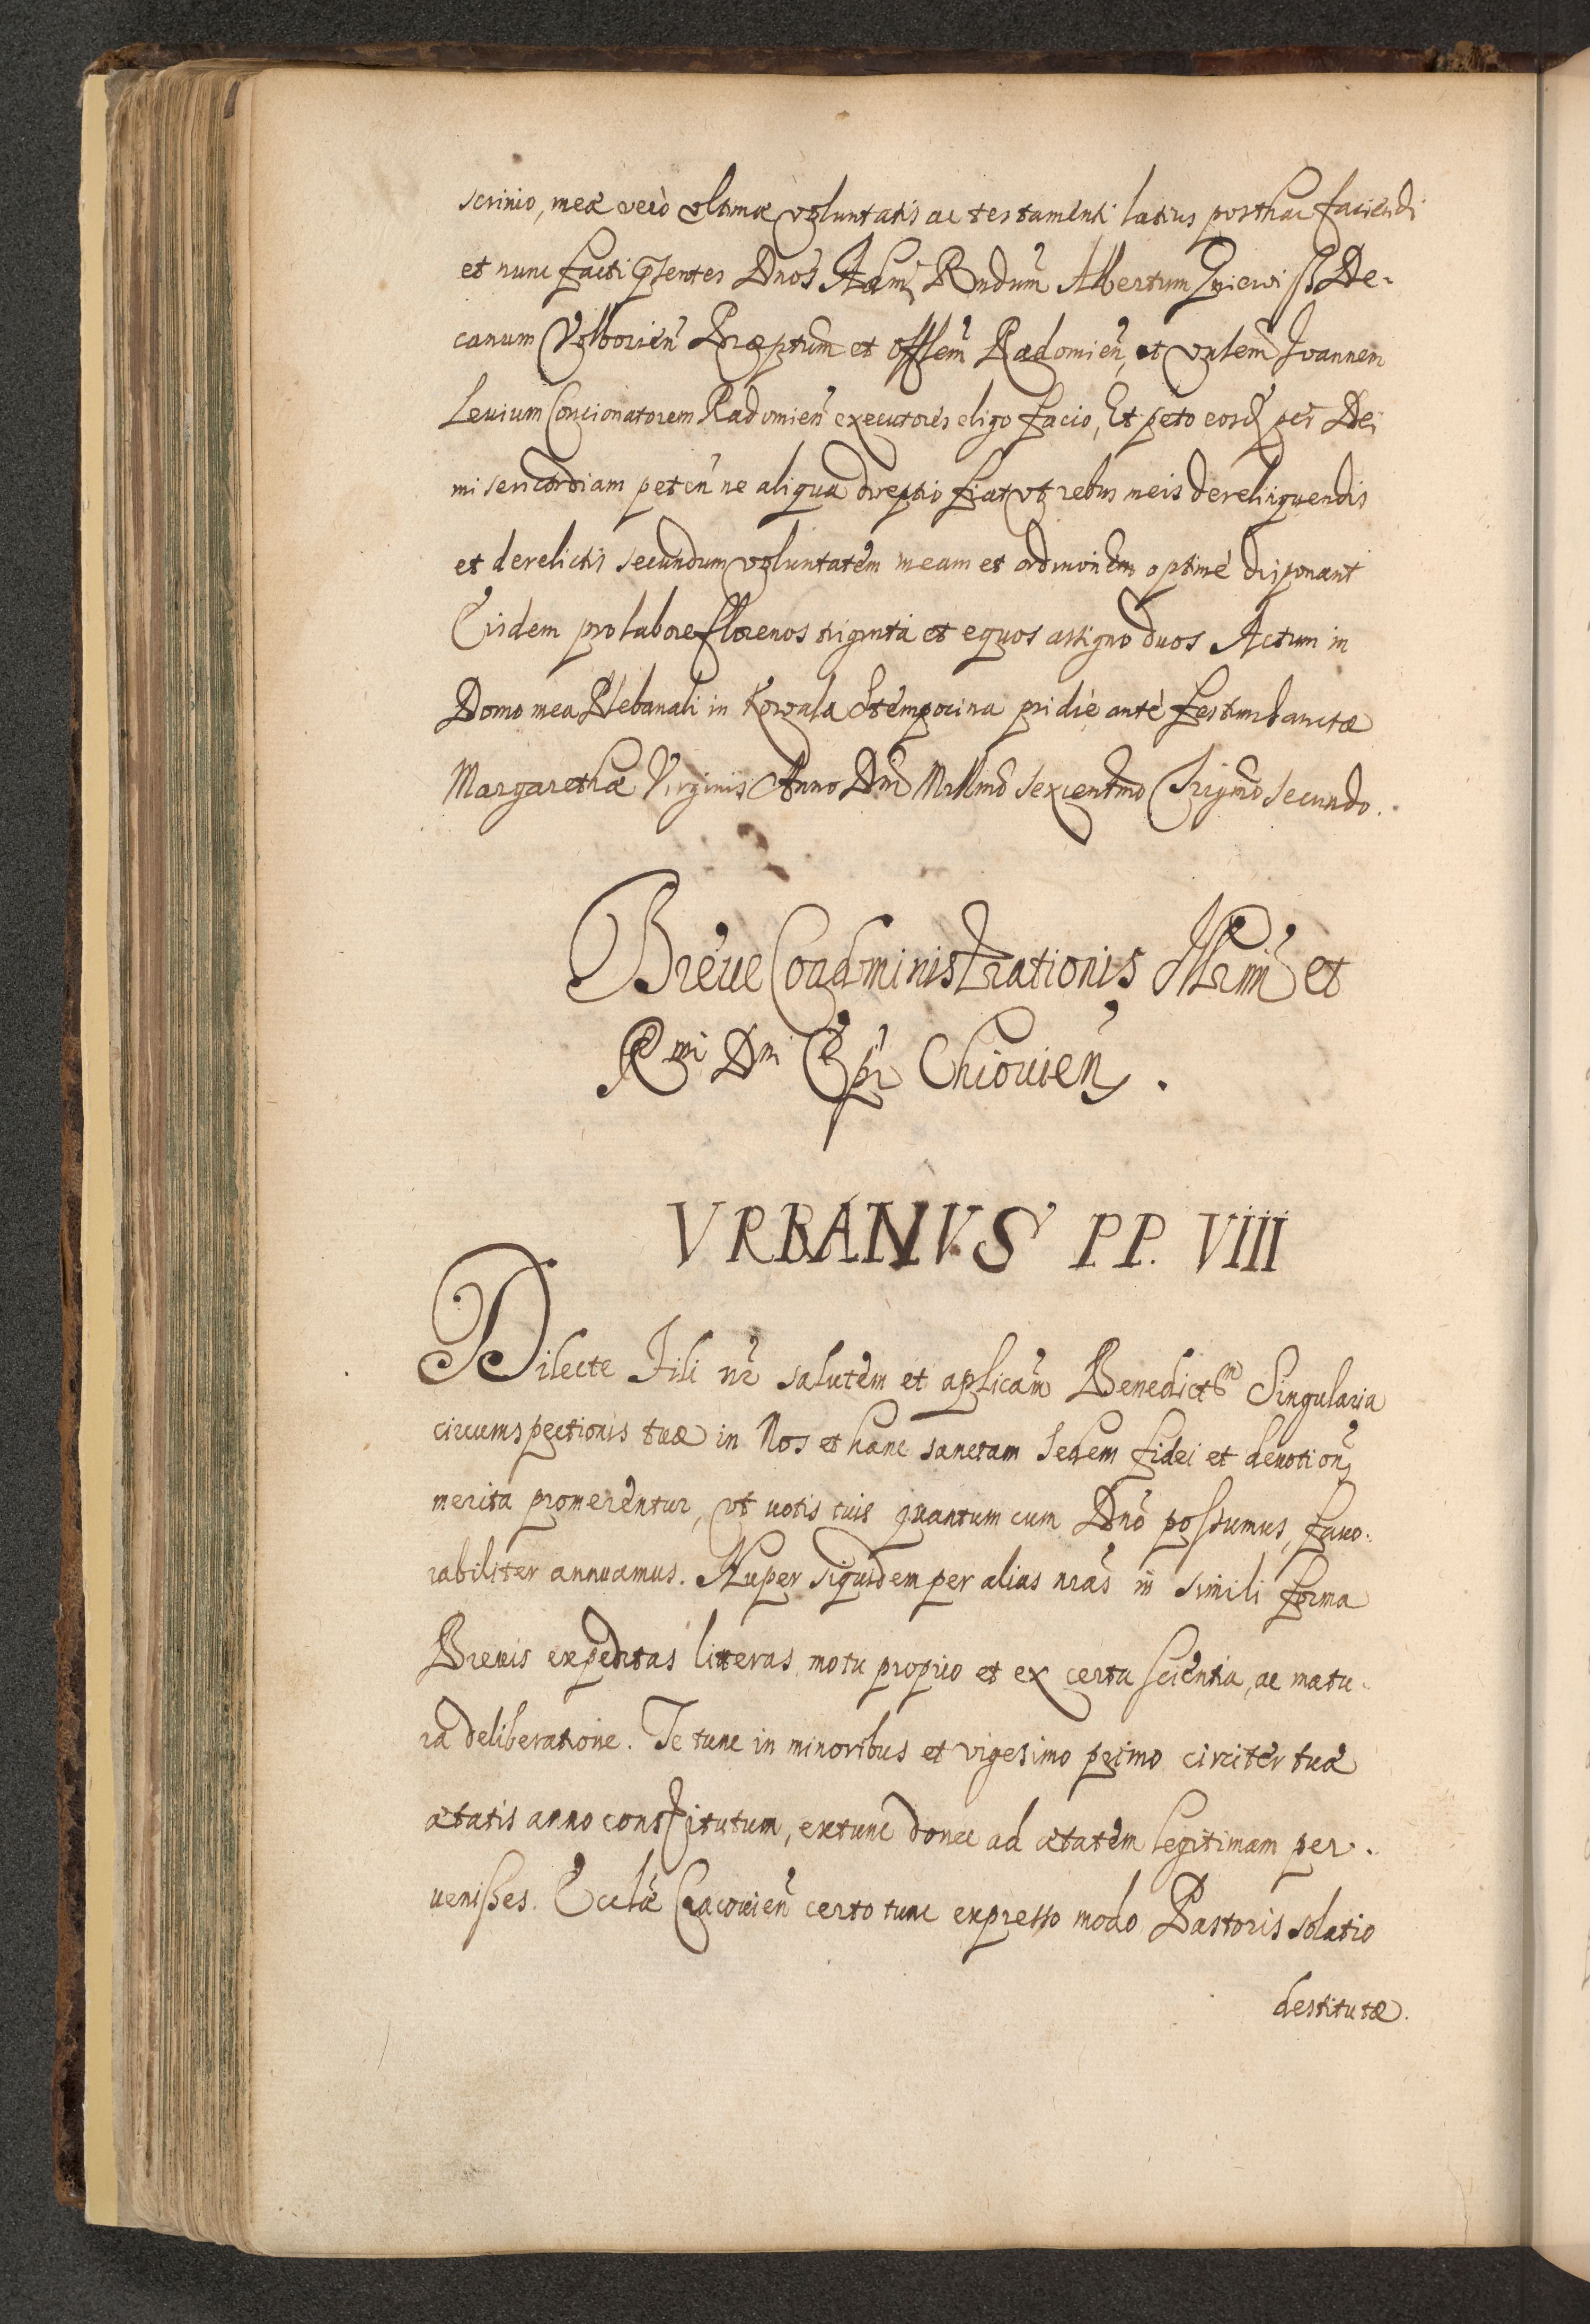 scrinio, meæ verò vltimæ voluntatis ac testamenti latius posthac faciendi
et nunc facti p̃sentes Dnõs Adm̃ Rndũm Albertum De-
canum Volborien̄ Præptum et Offlem̃ Radomien̄, et Vnlem̃ Joannem
Leuium Concionatorem Radomien̄ executores eligo facio, Et peto eosd̃ per Dei
misericordiam peten̄ ne aliqua direptio fiat vt rebus meis derelinquendis
et derelictis secundum voluntatem meam et ordinõnem optimè disponant
Eisdem pro labore florenos triginta et equos assigno duos Actum in
Domo mea Plebanali in Kowala Stempocina pridiè antè festum Sanctæ
Margarethæ Virginis Anno Dnĩ Millmõ Sexcentmõ Trigmõ Secundo.
Breue Coadministrationis Illrmĩ et
Rmi Dni Epĩ Chiouien̄.
VRBANVS PP. VIII
Dilecte Fili nr̃ salutem et aplicam̃ Benedictm Singularia
circumspectionis tuæ in Nos et hanc sanctam Sedem fidei et deuotion̄
merita promerentur, vt uotis tuis quantum cum Dnõ possumus, fauo-
rabiliter annuamus. Nuper siquidem per alias nrãs in simili forma
Breuis expeditas litteras motu proprio et ex certa scientia, ac matu-
ra deliberatione. Te tunc in minoribus et vigesimo primo circiter tuæ
ætatis anno constitutum, extunc donec ad ætatem legitimam per-
uenisses. Ecclæ̃ Cracouien̄ certo tunc expresso modo Pastoris solatio
destitutæ.